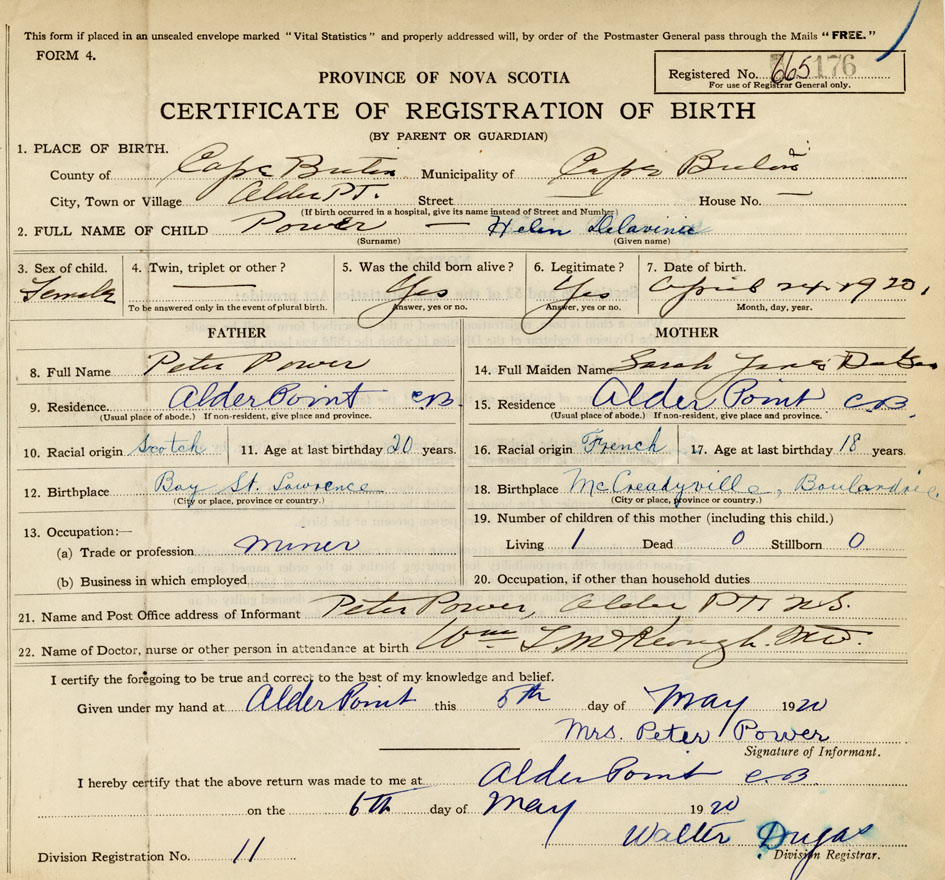 This form if placed in an unsealed envelope marked "Vital Statistics" and properly addressed will, by order of the Postmaster General pass through the Mails "FREE."
FORM 4.
PROVINCE OF NOVA SCOTIA
Registered No. 665 176
For use of Registrar General only.
CERTIFICATE OF REGISTRATION OF BIRTH
(BY PARENT OR GUARDIAN)
1. PLACE OF BIRTH.
County of Cape Breton Municipality of Cape Breton
City, Town or Village Alder PT. Street — House No. —
(If birth occurred in a hospital, give its name instead of Street and Number)
2. FULL NAME OF CHILD Power — Helen Delavinia
(Surname) (Given name)
3. Sex of child. 4. Twin, triplet or other? 5. Was the child born alive? 6. Legitimate? 7. Date of birth.
Female — Yes Yes April 24. 1920.
To be answered only in the event of plural birth. Answer, yes or no. Answer, yes or no. Month, day, year.
FATHER MOTHER
8. Full Name Peter Power 14. Full Maiden Name Sarah Jane
9. Residence. Alder Point C.B. 15. Residence Alder Point C.B.
(Usual place of abode.) If non-resident, give place and province. (Usual place of abode.) If non-resident, give place and province.
10. Racial origin Scotch 11. Age at last birthday 20 years. 16. Racial origin French 17. Age at last birthday 18 years.
12. Birthplace Bay St. Lawrence 18. Birthplace McCreadyville, Boulardrie
(City or place, province or country.) (City or place, province or country.)
13. Occupation:— 19. Number of children of this mother (including this child.)
(a) Trade or profession miner Living 1 Dead 0 Stillborn 0
(b) Business in which employed 20. Occupation, if other than household duties
21. Name and Post Office address of Informant Peter Power, Alder PTT N.S.
22. Name of Doctor, nurse or other person in attendance at birth Wm T McKeough. M.D.
I certify the foregoing to be true and correct to the best of my knowledge and belief.
Given under my hand at Alder Point this 5th day of May 1920
Mrs. Peter Power
Signature of Informant.
I hereby certify that the above return was made to me at Alder Point C.B
on the 6th day of May 1920
Walter Dugas
Division Registration No. 11 Division Registrar.